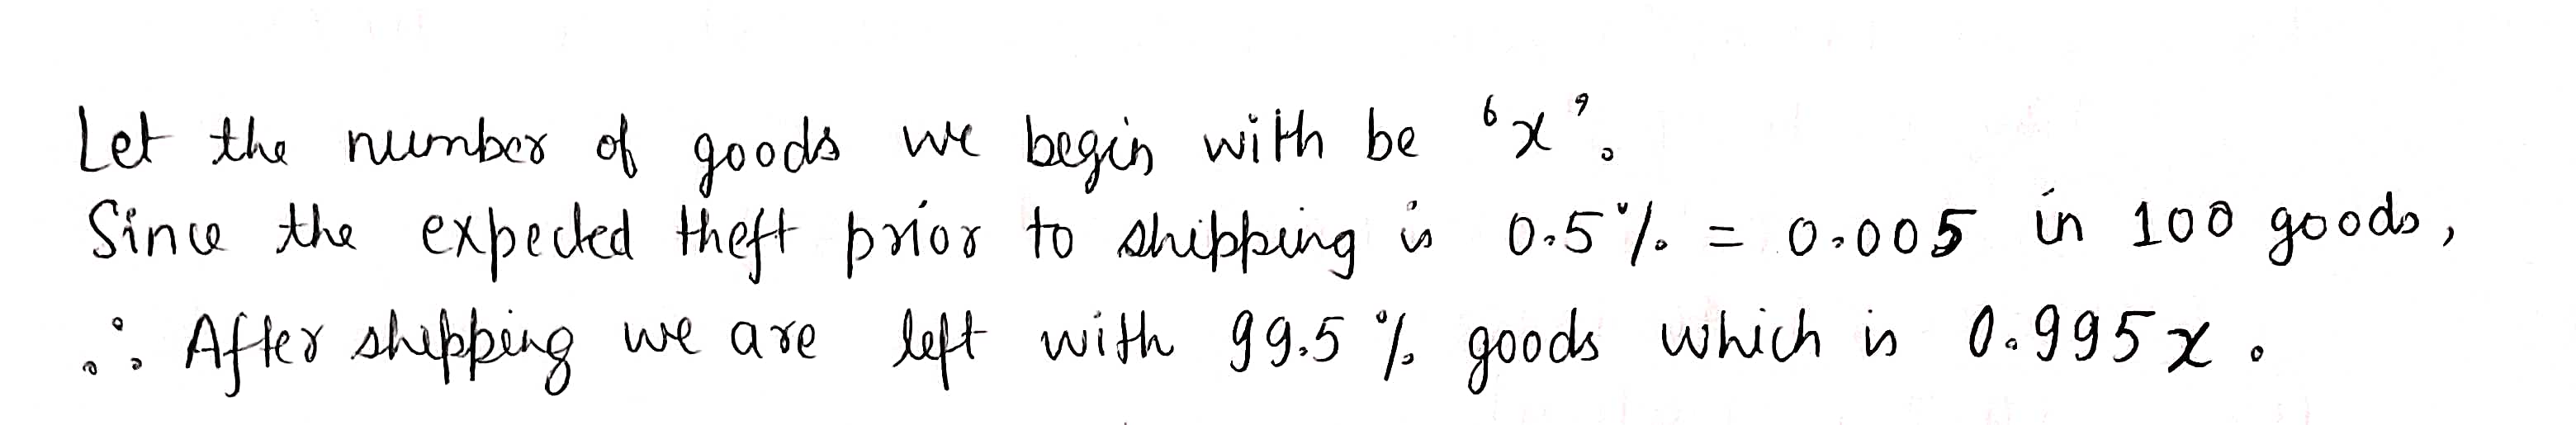 Let the number of goods we begin with be ‘x’.
Since the expected theft prior to shipping is 0.5% = 0.005 in 100 goods,
∴ After shipping we are left with 99.5% goods which is 0.995x.